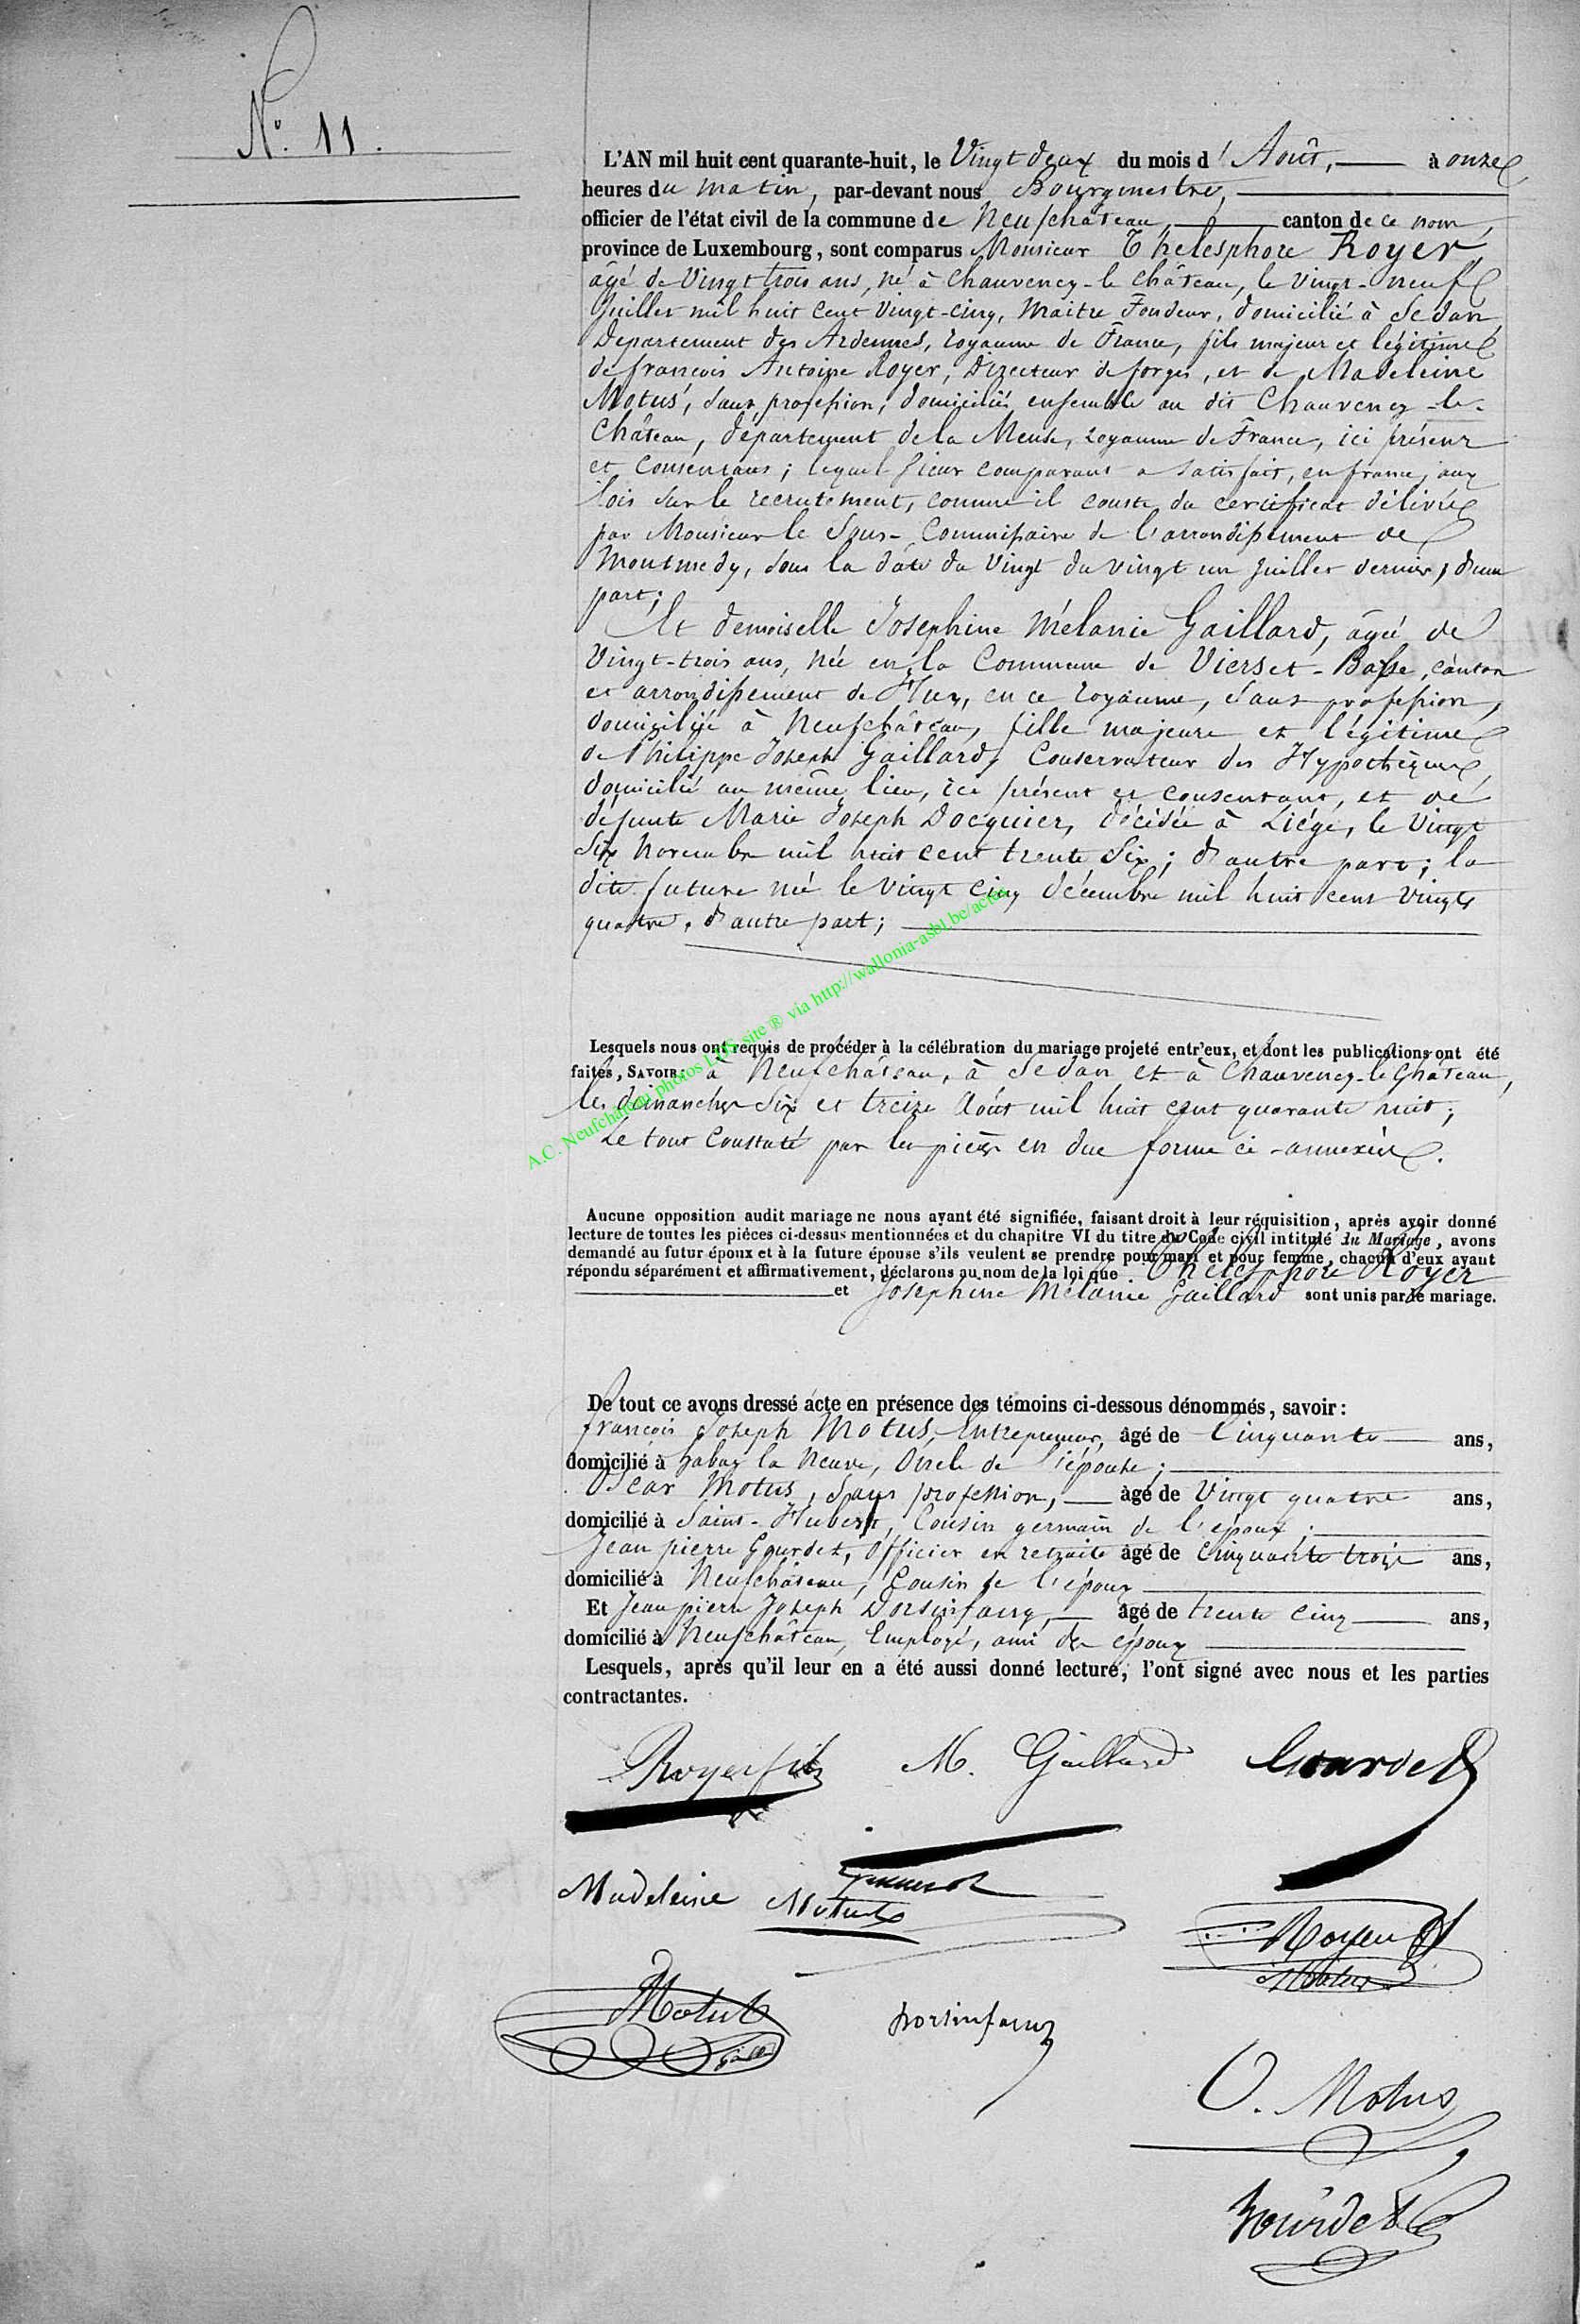 N.° 11.
L'AN mil huit cent quarante-huit, le Vingt deux du mois d' Août, à onze
heures du matin, par-devant nous Bourgmestre,
officier de l'état civil de la commune de Neufchâteau, canton de ce nom,
province de Luxembourg, sont comparus Monsieur Thelesphore Royer,
âgé de Vingt trois ans, né à Chauvency-le Château, le Vingt-neuf
Juillet mil huit cent Vingt-cinq, Maitre Fondeur, domicilié à Sedan
Departement des Ardennes, royaume de France, fils majeur et légitime
de francois Antoine Royer, Directeur de forges, et de Madeleine
Motus, sans profession, domiciliés ensemble au dit Chauvency-le-
Château, département de la Meuse, royaume de France, ici présens
et Consentans; lequel sieur comparant a satisfait, en france, aux
lois sur le recrutement, comme il conste du certificat délivré
par Monsieur le Sous-Commissaire de l'arrondissement de
Montmedy, sous la date du Vingt du vingt un Juillet dernier, d'une
part;
Et demoiselle Josephine Mélanie Gaillard, âgée de
Vingt-trois ans, née en la Commune de Vierset-Basse, canton
et arrondissement de Huy, en ce royaume, sans profession,
domiciliée à Neufchâteau, fille majeure et légitime
de Philippe Joseph Gaillard, Conservateur des Hypothèques,
domicilié au même lieu, ici présent et consentant, et de
défunte Marie Joseph Docquier, décédée à Liége, le Vingt
Six Novembre mil huit cent trente Six; d'autre part; la
dite future née le Vingt cinq décembre mil huit cent Vingt
quatre, d'autre part;
Lesquels nous ont requis de procéder à la célébration du mariage projeté entr'eux, et dont les publications ont été
faites, SAVOIR: à Neufchâteau, à Sedan et à Chauvency-le Château,
les dimanches Six et treize Août mil huit cent quarante huit;
Le tout Constaté par les pièces en due forme ci-annexées.
A.C. Neufchâteau photos LDS site ® via http://wallonia-asbl.be/actes
Aucune opposition audit mariage ne nous ayant été signifiée, faisant droit à leur réquisition, après avoir donné
lecture de toutes les pièces ci-dessus mentionnées et du chapitre VI du titre du Code civil intitulé du Mariage, avons
demandé au futur époux et à la future épouse s'ils veulent se prendre pour mari et pour femme, chacun d'eux ayant
répondu séparément et affirmativement, déclarons au nom de la loi que Thelesphore Royer
et Josephine Mélanie Gaillard sont unis par le mariage.
De tout ce avons dressé acte en présence des témoins ci-dessous dénommés, savoir:
francois Joseph Motus, Entrepreneur, âgé de Cinquante ans,
domicilié à habay la Neuve, Oncle de l'époux;
Oscar Motus, Sans profession, âgé de Vingt quatre ans,
domicilié à Saint-Hubert, Cousin germain de l'époux;
Jean pierre Gourdet, Officier en retraite âgé de Cinquante trois ans,
domicilié à Neufchâteau, Cousin de l'époux
Et Jean pierre Joseph Dorsinfang, âgé de trente cinq ans,
domicilié à Neufchâteau, Employé, ami des époux
Lesquels, après qu'il leur en a été aussi donné lecture, l'ont signé avec nous et les parties
contractantes.
Royer fils M. Gaillard Gourdet
Madeleine Motus
Royer
Motus
Motus
Dorsinfang
O. Motus
Gourdet